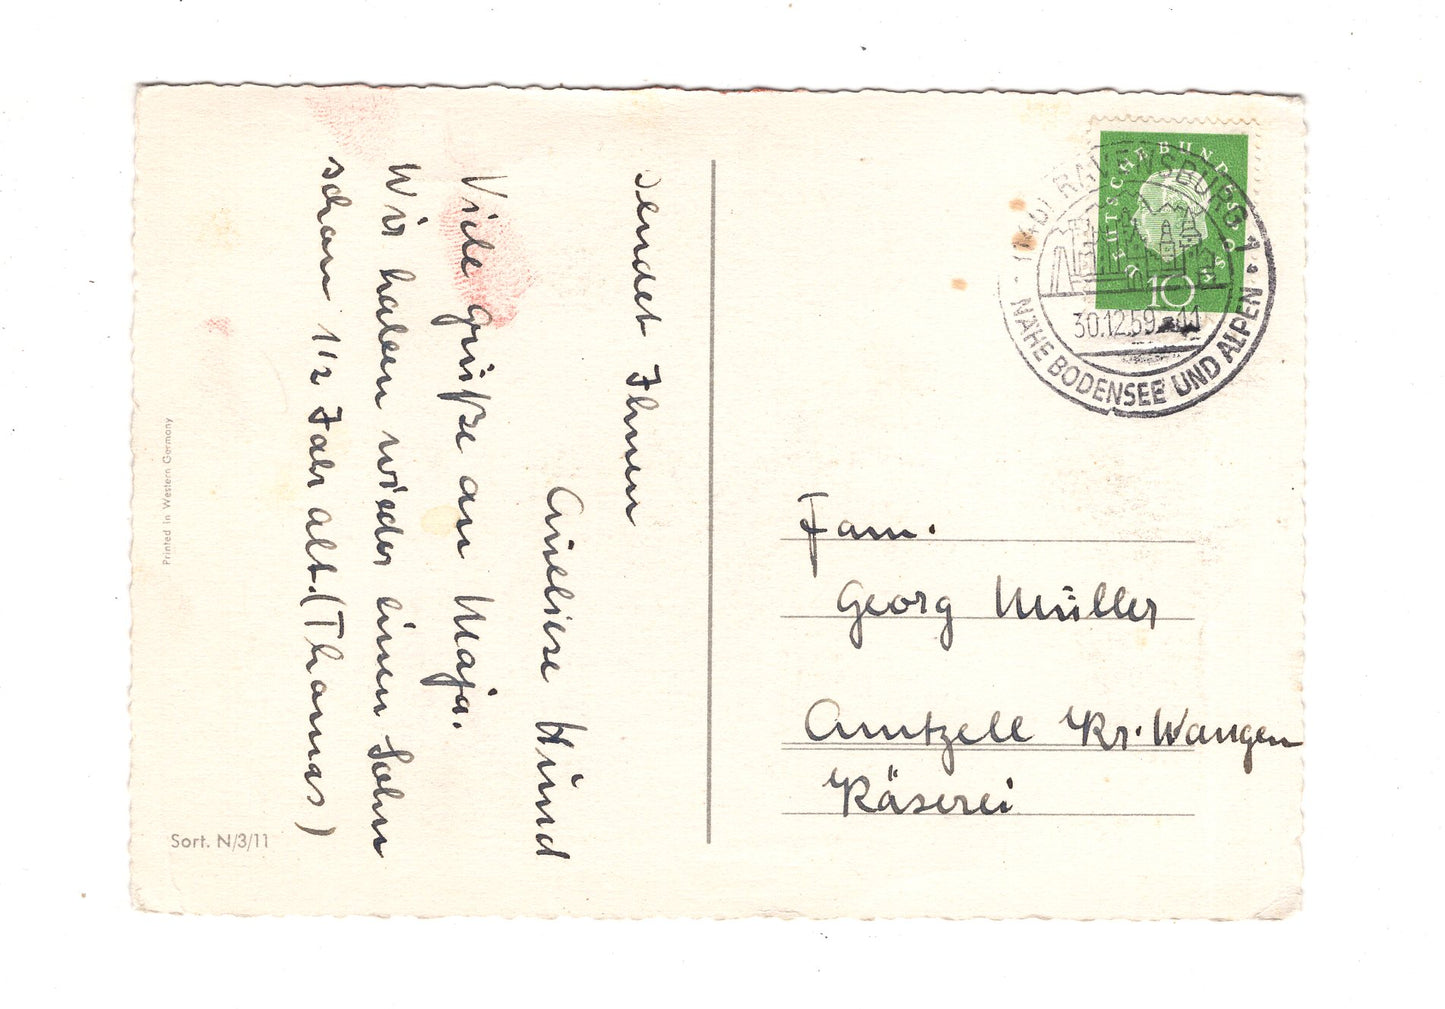 sendet Ihnen
Anneliese Hund
Viele Grüße an Maja.
Wir haben wieder einen Sohn
schon 1 1/2 Jahr alt. (Thomas)
Printed in Western Germany
Sort. N/3/11
DEUTSCHE BUNDESPOST
10
(14b) RAVENSBURG 1
30.12.59 - 11
NÄHE BODENSEE UND ALPEN
Fam.
Georg Müller
Amtzell Kr. Wangen
Käserei